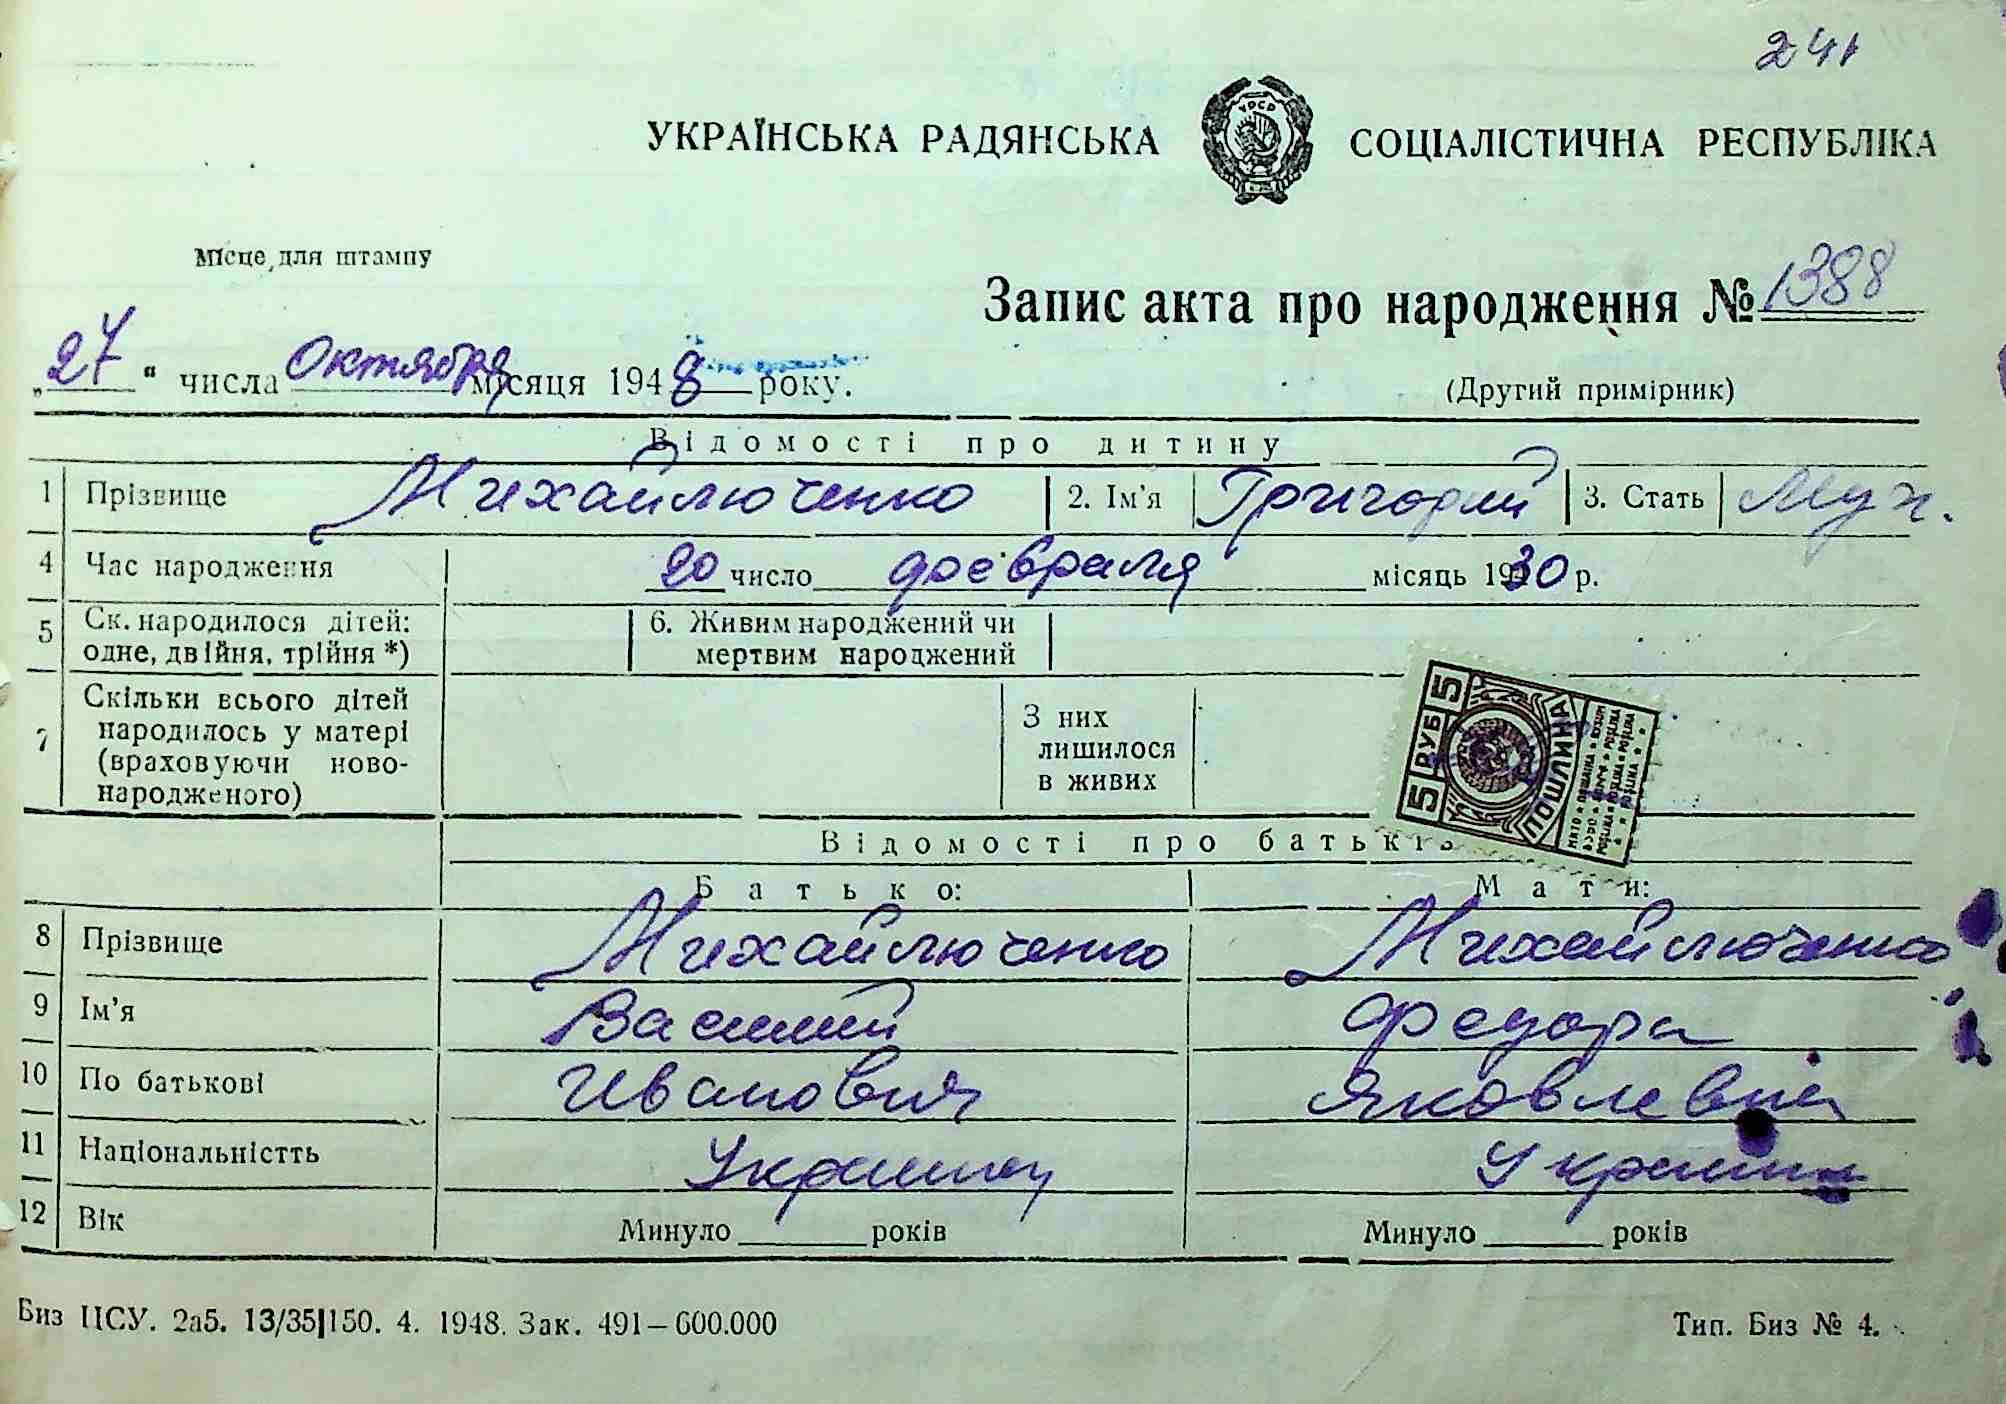 241
УКРАЇНСЬКА РАДЯНСЬКА СОЦІАЛІСТИЧНА РЕСПУБЛІКА
УРСР
Місце для штампу
Запис акта про народження № 1388
„27“ числа Октября місяця 1948 року.
(Другий примірник)
Відомості про дитину
1 Прізвище Михайлюченко 2. Ім'я Григорий 3. Стать Муж.
4 Час народження 20 число февраля місяць 1930 р.
5 Ск. народилося дітей: одне, двійня, трійня *) 6. Живим народжений чи мертвим народжений
7 Скільки всього дітей народилось у матері (враховуючи новонародженого) З них лишилося в живих
5 РУБ 5
ПОШЛИНА
Відомості про батьків
Батько: Мати:
8 Прізвище Михайлюченко Михайлюченко
9 Ім'я Василий Федора
10 По батькові Иванович Яковлевна
11 Національністть Украинец Украин
12 Вік Минуло ____ років Минуло ____ років
Биз ЦСУ. 2а5. 13/35|150. 4. 1948. Зак. 491—600.000
Тип. Биз № 4.